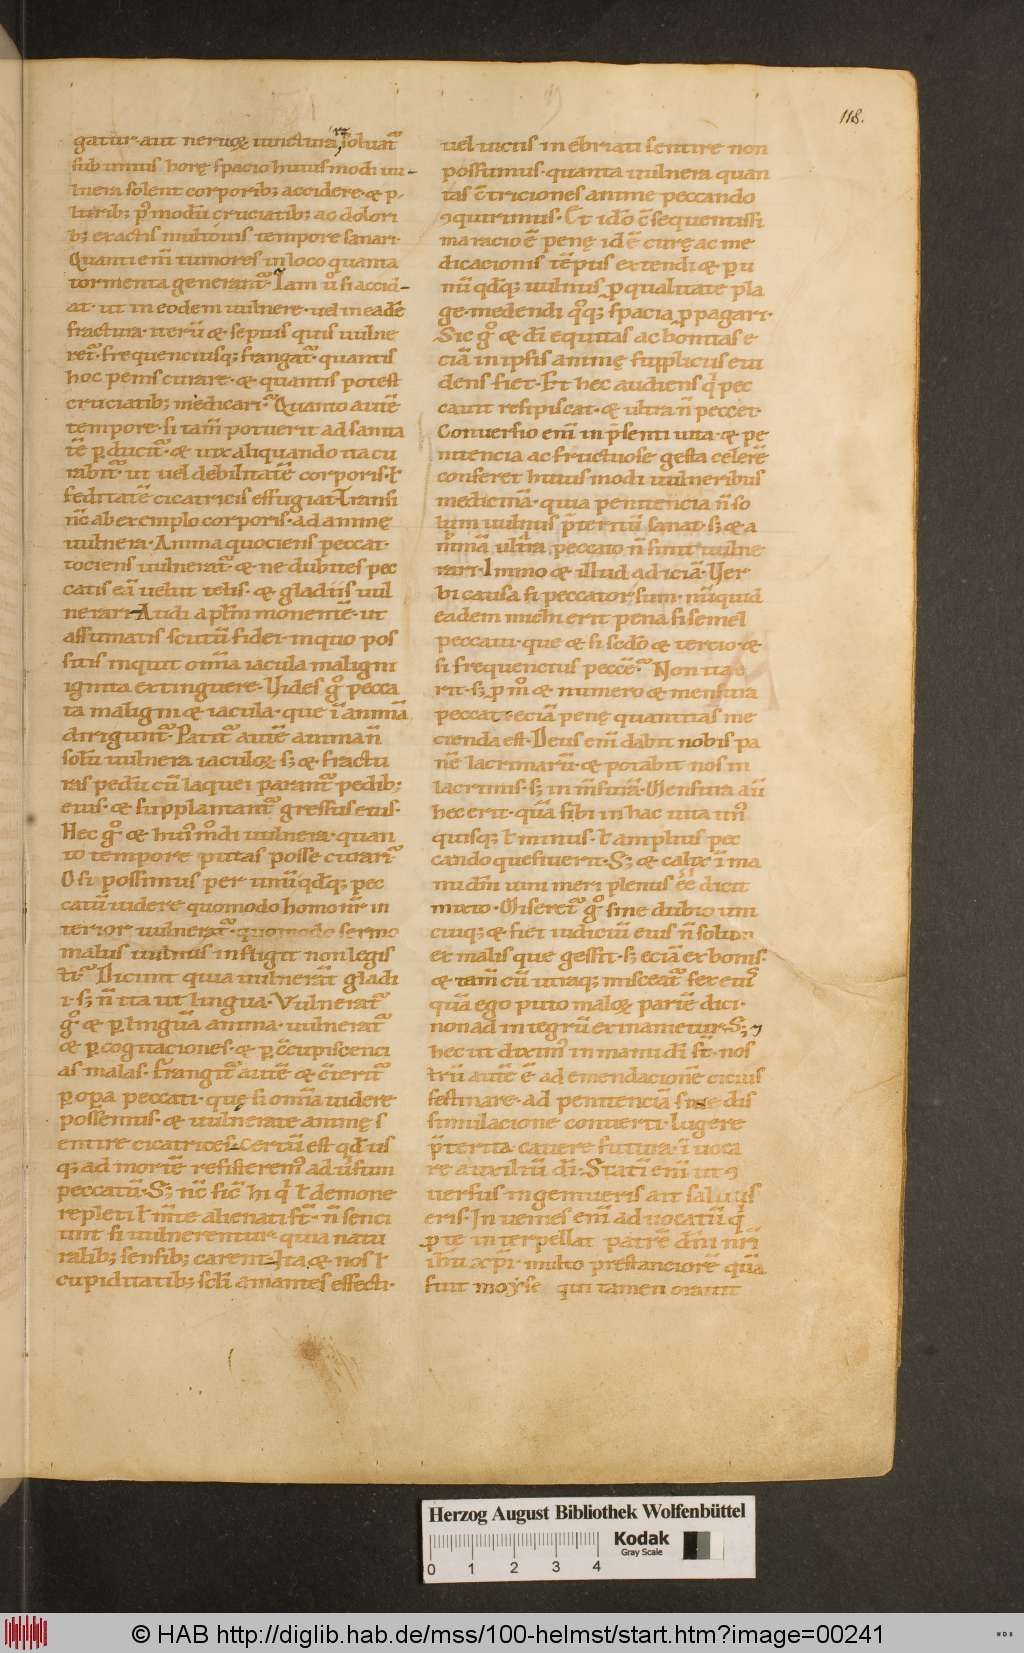 118.
gatur· aut neruoꝝ iunctura soluat᷑
sub unius horę spacio huius modi uu-
lnera solent corporib; accidere· & p
lurib; p᷒ modū cruciatib; ac dolori
b; exactis multouis tempore sanari·
Quanti em̄ tumores in loco quanta
tormenta generant᷑. Iam u̾ si accid-
at· ut in eodem uulnere· uel in eadē
fractura· iterū & sepius quis uulne
ret᷑· frequenciusq; frangat᷑· quantis
hoc penis curare· & quantis potest
cruciatib; medicari᷑. Quanto autē
tempore· si tam̄ potuerit ad sanita
tē ꝑducit᷑· & uix aliquando ita cu
rabit᷑· ut uel debilitatē corporis· ł
feditatē cicatricis effugiat. Transi
nc̄ ab exemplo corporis· ad animę
uulnera· Anima quociens peccat·
tociens uulnerat᷑· & ne dubites pec
catis eā uelut telis· & gladiis uul
nerari· Audi apl̄m monentē· ut
assumatis scutū fidei· in quo pos
sitis inquit om̄ia iacula maligni
ignita extinguere· Uides g̊ pecca
ta maligni & iacula· que ī animā
dirigunt᷑. Patit᷑ autē anima n̄
solū uulnera iaculoꝝ s; & fractu
ras pedū cū laquei parant᷑ pedib;
eius· & supplantant᷑ gressus eius·
Hec g̊ & hui᷒mōdi uulnera· quan
to tempore putas posse curari᷑
O si possimus per unū qd̄q; pec
catū uidere quomodo homo nr̄ in
terior uulnerat᷑· quomodo sermo
malus uulnus infligit non legis
ti᷑ Dicunt quia uulnerāt gladi
i· s; n̄ ita ut lingua· Vulnerat᷑
g̊ & ꝑ linguā anima· uulnerat᷑
& ꝑ cogitaciones· & ꝑ ↄcupiscenci
as malas· frangit᷑ autē & ↄterit᷑
ꝑ opa peccati· quę si om̄ia uidere
possemus· & uulnerate animę s
entire cicatrices· Certū est qd̄ us
q; ad mortē resisterem᷒ ad ūsum
peccatū· S; nc̄ sic̄ hi q̇ ł demone
repleti ł m̄te alienati st̄· n̄ senci
unt si uulnerentur· quia natu
ralib; sensib; carent· Ita & nos ł
cupiditatib; scl̄i amantes effecti·
uel uiciis inebriati sentire non
possumus· quanta uulnera quan
tas ↄtriciones anime peccando
ↄquirimus· Et idō ↄsequentissi
ma racio ē penę id ē curę ac me
dicacionis tēpus extendi & p u
nū qd̄q; uulnus ꝓ qualitate pla
ge· medendi q°q; spacia ꝓpagari·
Sic g̊ & dī equitas ac bonitas e
ciā in ipsis animę suppliciis eui
dens fiet· Et hec audiens q̇ pec
cauit resipiscat· & ultra n̄ peccet·
Conuersio em̄ in p̄senti uita· & pę
nitencia ac fructuose gesta celerē
conferet huius modi uulneribus
medicinā· quia penitencia n̄ so
lum uulnus p̄teritū sanat· s; & a
nimā ultra peccato n̄ sinit uulne
rari· Immo & illud adiciā· Uer
bi causa si peccator sum· nūquid
eadem michi erit pena si semel
peccaui· que & si scd̄o & tercio· &
si frequencius peccē᷑. Non ita e
rit· s; ꝓ m° & numero & mensura
peccati· eciā penę quantitas me
cienda est· Deus em̄ dabit nobis pa
nē lacrimarū· & potabit nos in
lacrimis· s; in m̄surā· Mensura aū
hec erit· quā sibi in hac uita un᷒
quisq; ł minus· ł amplius pec
cando quesiuerit· S; & calix ī ma
nu dn̄i uini meri plenus eē dicit
mixto· Miseret᷑ g̊ sine dubio uni
cuiq; & fiet iudiciū eius n̄ solum
ex malis que gessit· s; eciā ex bonis·
& tam̄ cū utraq; misceat᷑
quā ego puto maloꝝ partē dici·
non ad integrū exinanietur· S;
hec ut dixim᷒ in manu dī st̄· nos
trū autē ē ad emendacionē cicius
festinare· ad penitenciā sine dis
simulacione conuerti· lugere
p̄terita· cauere futura· ī uoca
re auxiliū dī· Statī em̄ ut ↄ
uersus ingemueris ait saluus
eris· Inuenies em̄ aduocatū q̇
ꝓ te interpellat patrē dn̄m nr̄ī
ihm̄ xp̄ī· multo prestanciorē quā
fuit moyse qui tamen orauit
Herzog August Bibliothek Wolfenbüttel
0 1 2 3 4
Kodak
Gray Scale
© HAB http://diglib.hab.de/mss/100-helmst/start.htm?image=00241